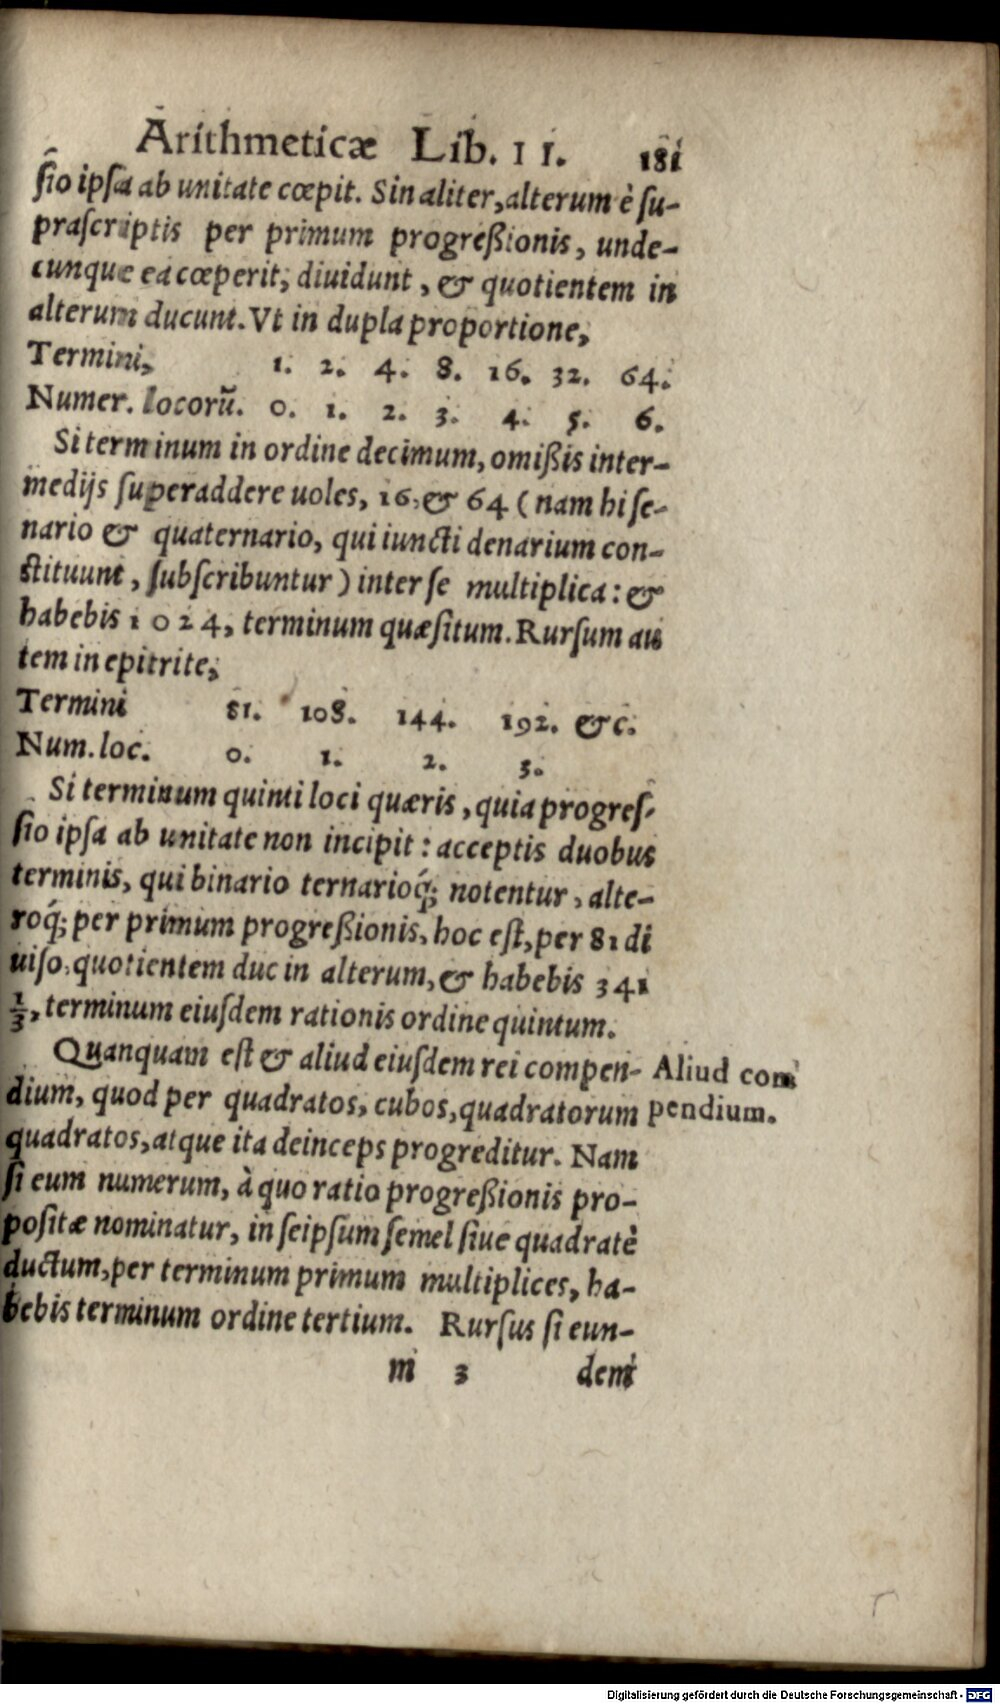 Arithmeticæ Lib. II. 181
ſio ipſa ab unitate cœpit. Sin aliter, alterum è ſu-
praſcriptis per primum progreßionis, unde-
cunque ea cœperit, diuidunt, & quotientem in
alterum ducunt. Vt in dupla proportione,
Termini, 1. 2. 4. 8. 16. 32. 64.
Numer. locorũ. 0. 1. 2. 3. 4. 5. 6.
Si terminum in ordine decimum, omißis inter-
medijs ſuperaddere uoles, 16, & 64 (nam hi ſe-
nario & quaternario, qui iuncti denarium con-
ſtituunt, ſubſcribuntur) inter ſe multiplica: &
habebis 1024, terminum quæſitum. Rurſum au
tem in epitrite,
Termini 81. 108. 144. 192. &c.
Num. loc. 0. 1. 2. 3.
Si terminum quinti loci quæris, quia progreſ-
ſio ipſa ab unitate non incipit: acceptis duobus
terminis, qui binario ternarioq́; notentur, alte-
roq́; per primum progreßionis, hoc eſt, per 81 di
uiſo, quotientem duc in alterum, & habebis 341
1/3, terminum eiuſdem rationis ordine quintum.
Quanquam eſt & aliud eiuſdem rei compen-
dium, quod per quadratos, cubos, quadratorum
quadratos, atque ita deinceps progreditur. Nam
ſi eum numerum, à quo ratio progreßionis pro-
poſitæ nominatur, in ſeipſum ſemel ſiue quadratè
ductum, per terminum primum multiplices, ha-
bebis terminum ordine tertium. Rurſus ſi eun-
m 3 dem
Aliud com
pendium.
Digitalisierung gefördert durch die Deutsche Forschungsgemeinschaft - DFG